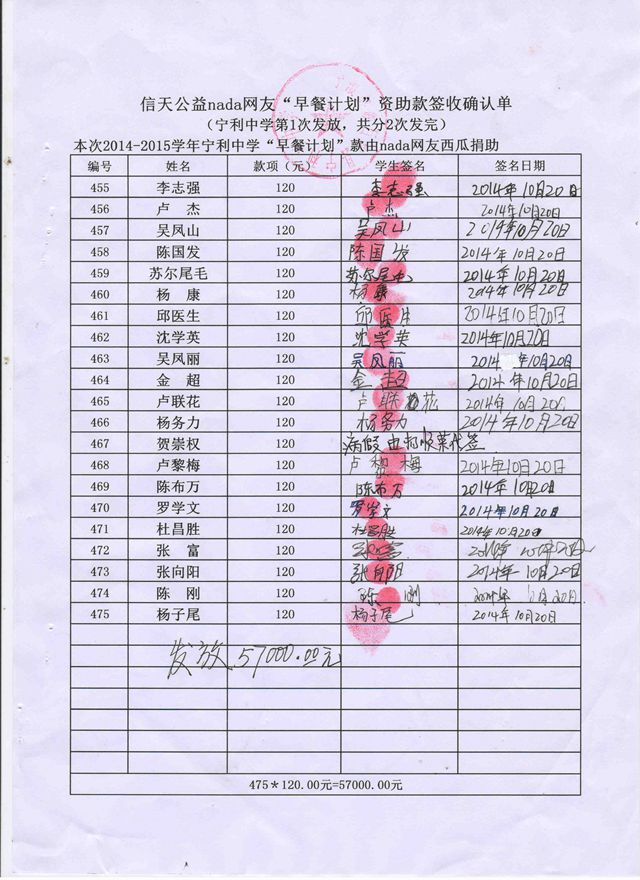 信天公益nada网友“早餐计划”资助款签收确认单
（宁利中学第1次发放，共分2次发完）
本次2014-2015学年宁利中学“早餐计划”款由nada网友西瓜捐助
编号 姓名 款项（元） 学生签名 签名日期
455 李志强 120 李志强 2014年10月20日
456 卢 杰 120 卢杰 2014年10月20日
457 吴凤山 120 吴凤山 2014年10月20日
458 陈国发 120 陈国发 2014年10月20日
459 苏尔尾毛 120 苏尔尾毛 2014年10月20日
460 杨 康 120 杨康 2014年10月20日
461 邱医生 120 邱医生 2014年10月20日
462 沈学英 120 沈学英 2014年10月20日
463 吴凤丽 120 吴凤丽 2014年10月20日
464 金 超 120 金超 2014年10月20日
465 卢联花 120 卢联花 2014年10月20
466 杨务力 120 杨务力 2014年10月20日
467 贺崇权 120 病假由 代签
468 卢黎梅 120 卢黎梅 2014年10月20日
469 陈布万 120 陈布万 2014年10月20日
470 罗学文 120 罗学文 2014年10月20日
471 杜昌胜 120 杜昌胜 2014年10月20日
472 张 富 120
473 张向阳 120 张向阳 2014年10月20日
474 陈 刚 120 陈刚 2014年 月20日
475 杨子尾 120 杨子尾 2014年10月20日
发放57000.00元
475*120.00元=57000.00元